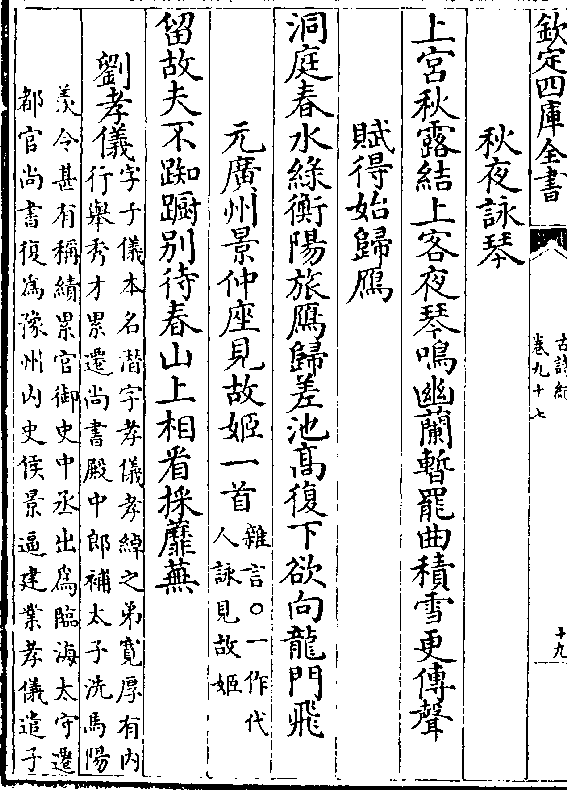 欽定四庫全書
古詩紀
卷九十七
十九
秋夜詠琴
上宮秋露結上客夜琴鳴幽蘭暫罷曲積雪更傳聲
賦得始歸鴈
洞庭春水綠衡陽旅鴈歸差池高復下欲向龍門飛
元廣州景仲座見故姬一首
雜言○一作代
人詠見故姬
留故夫不踟躕别待春山上相看採蘼蕪
劉孝儀
字子儀本名潛字孝儀孝綽之弟寛厚有内
行舉秀才累遷尚書殿中郎補太子洗馬陽
羨令甚有稱績累官御史中丞出為臨海太守遷
都官尚書復為豫州内史侯景逼建業孝儀遣子